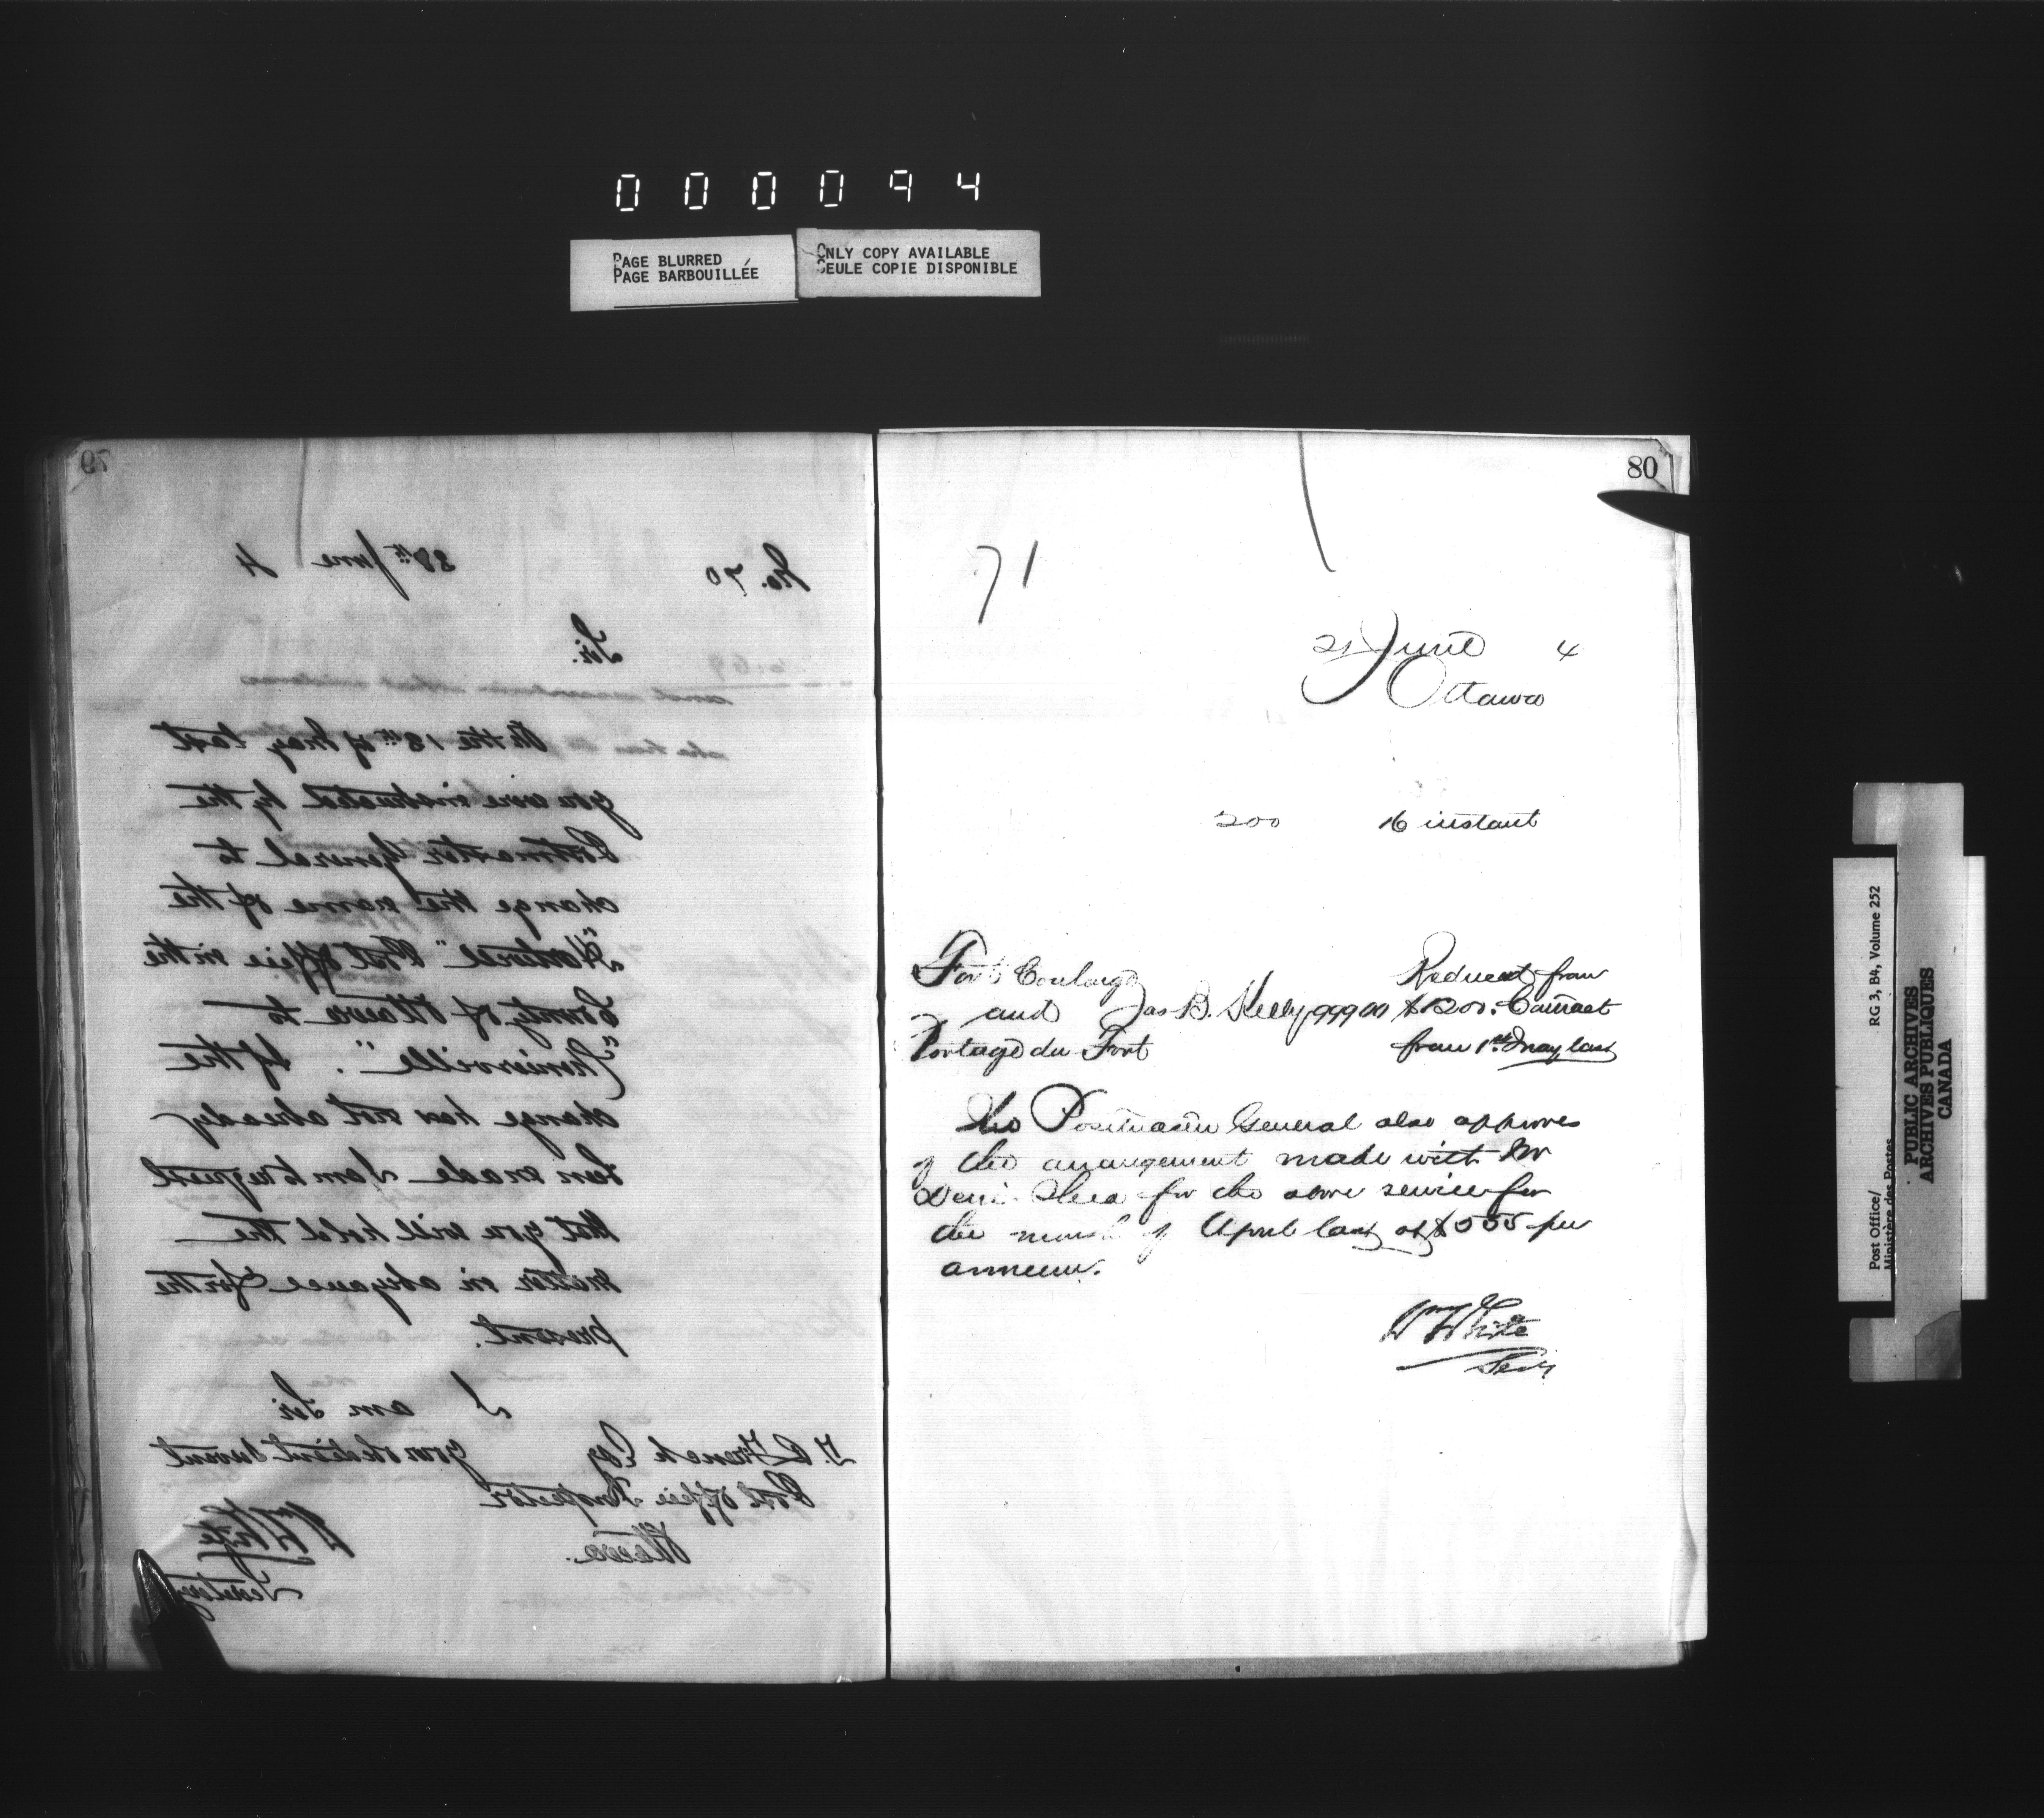 000094
PAGE BLURRED
PAGE BARBOUILLÉE
ONLY COPY AVAILABLE
SEULE COPIE DISPONIBLE
79
No. 70
28th June 4
Sir.
On the 18th of May last
you were instructed by the
Postmaster General to
change the name of the
Post Office in the
County of Ottawa to
If the
change has not already
been made I am to request
that you will hold the
matter in abeyance for the
present.
I am Sir
your obedient Servant
T. P. French Esq
Post Office Inspector
Ottawa.
Wm White
Secretary
80
71
21 June 4
Ottawa
200 16 instant
Fort Coulonge
and
Portage du Fort
Jas B. Kelly 999.00
Reduced from
$1200. Contract
from 1st May last
The Postmaster General also approves
of the arrangement made with Mr
Shea for the above service for
the month of April last at $555 per
annum.
Wm White
Secy
Post Office/
Ministère des Postes
RG 3, B4, Volume 252
PUBLIC ARCHIVES
ARCHIVES PUBLIQUES
CANADA